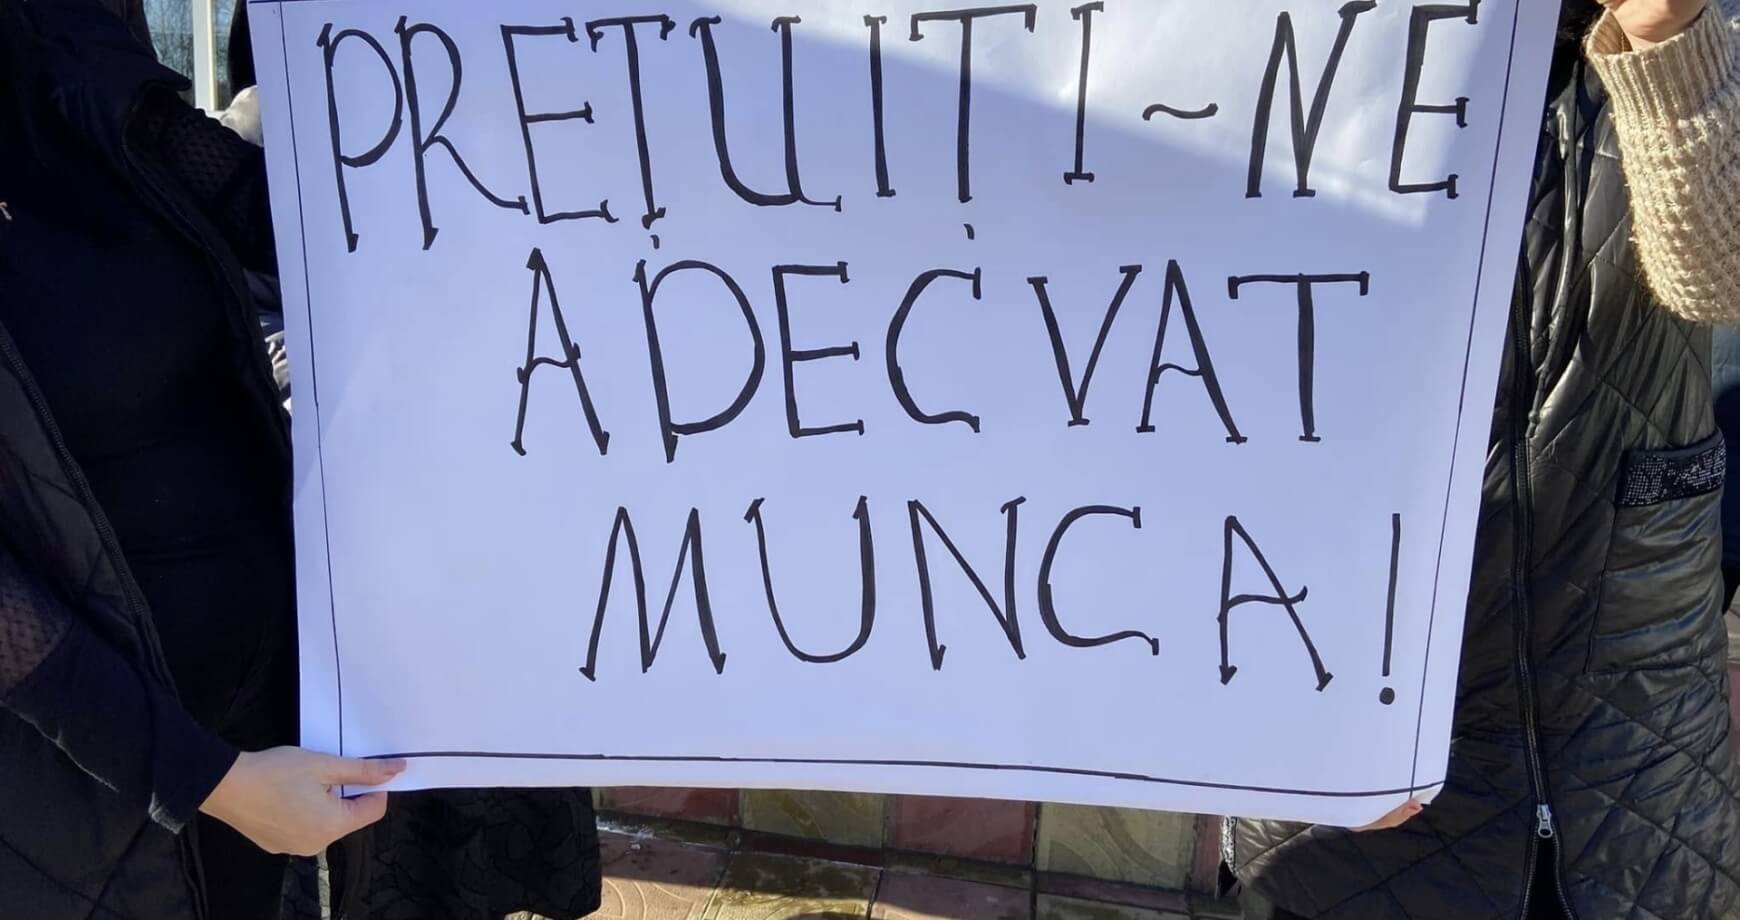 PREȚUIȚI-NE
ADECVAT
MUNCA!